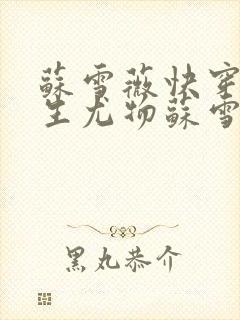 蘇雪薇快穿
生尤物蘇雪
黑丸恭介